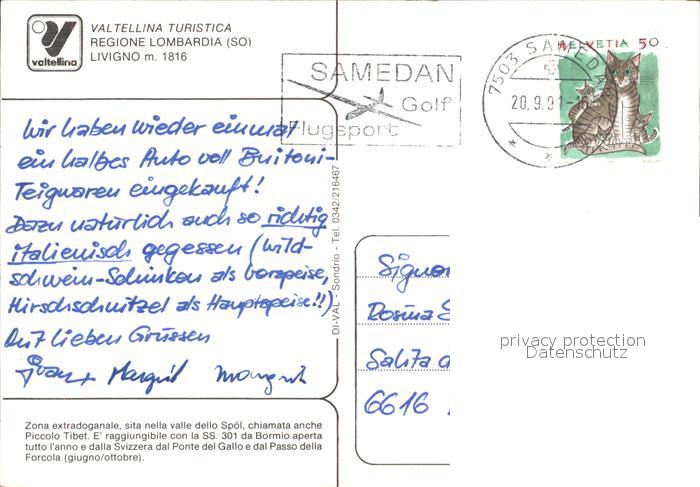 VALTELLINA TURISTICA
REGIONE LOMBARDIA (SO)
LIVIGNO m. 1816
valtellina
SAMEDAN
Golf
Flugsport
7503 SAMEDAN
20.9.91-16
HELVETIA 50
Wir haben wieder einmal
ein halbes Auto voll Buitoni-
Teigwaren eingekauft!
Dazu natürlich auch so richtig
italienisch gegessen (Wild-
schwein-Schinken als Vorspeise,
Hirschschnitzel als Hauptspeise!!)
Mit lieben Grüssen
+ Margrit
DI-VAL - Sondrio - Tel. 0342/216467
Signor
Rosina
Salita
6616
privacy protection
Datenschutz
Zona extradoganale, sita nella valle dello Spöl, chiamata anche
Piccolo Tibet. E' raggiungibile con la SS. 301 da Bormio aperta
tutto l'anno e dalla Svizzera dal Ponte del Gallo e dal Passo della
Forcola (giugno/ottobre).